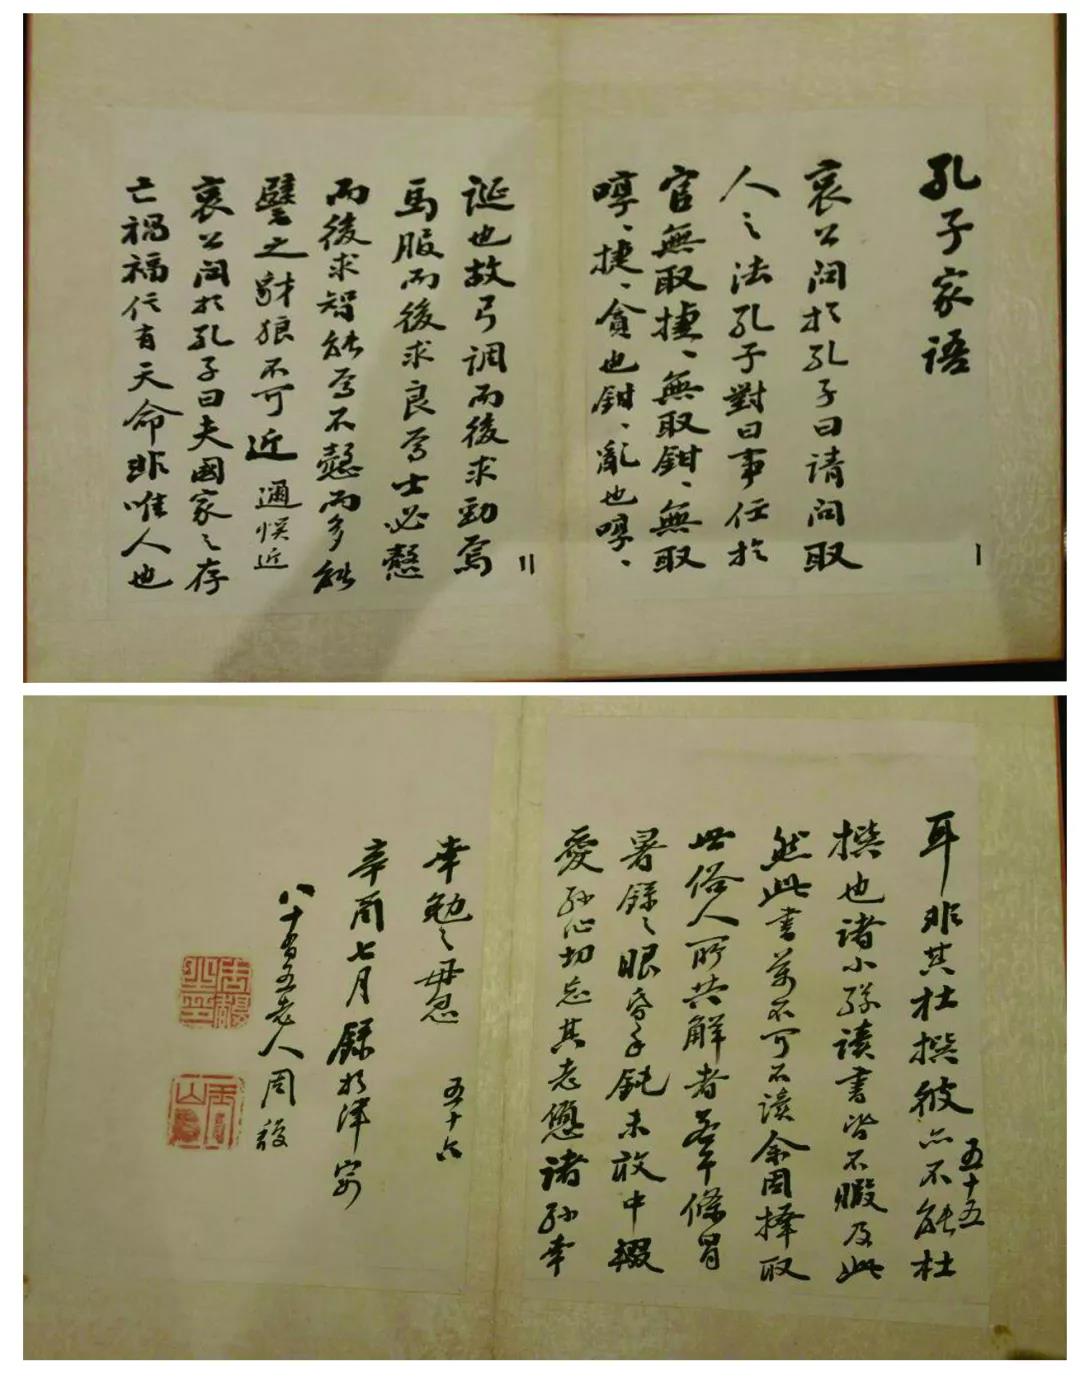 孔子家语
哀公问于孔子曰请问取
人之法孔子對曰事任於
官無取捷、無取鉗、無取
啍、捷、貪也鉗、亂也啍、
一
誕也故弓调而後求勁焉
馬服而後求良焉士必慤
而後求智能焉不慤而多能
譬之豺狼不可近 通悮近
哀公问於孔子曰夫國家之存
亡禍福信有天命非唯人也
二
耳非其杜撰彼亦不能杜
撰也诸小孫读書皆不暇及此
然此書萬不可不读余因择取
世俗人所共解者若干條冒
暑錄之眼昏手钝未敢中辍
爱孙心切忘其老憊诸孙幸
五十五
幸勉之毋忽
辛酉七月錄於津寓
八十有五老人周馥
五十六
周馥之印
玉山